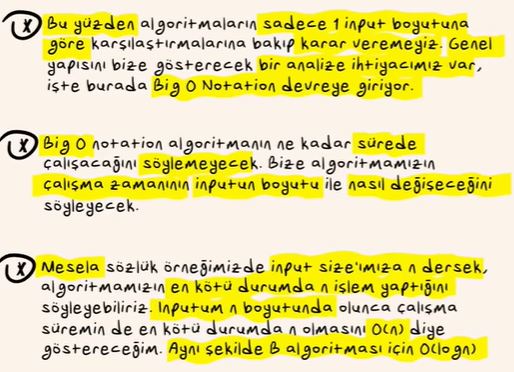 Bu yüzden algoritmaların sadece 1 input boyutuna
göre karşılaştırmalarına bakıp karar veremeyiz. Genel
yapısını bize gösterecek bir analize ihtiyacımız var,
işte burada Big O Notation devreye giriyor.
Big O notation algoritmanın ne kadar sürede
çalışacağını söylemeyecek. Bize algoritmamızın
çalışma zamanının inputun boyutu ile nasıl değişeceğini
söyleyecek.
Mesela sözlük örneğimizde input size'ımıza n dersek,
algoritmamızın en kötü durumda n işlem yaptığını
söyleyebiliriz. Inputum n boyutunda olunca çalışma
süremin de en kötü durumda n olmasını O(n) diye
göstereceğim. Aynı şekilde B algoritması için O(logn)